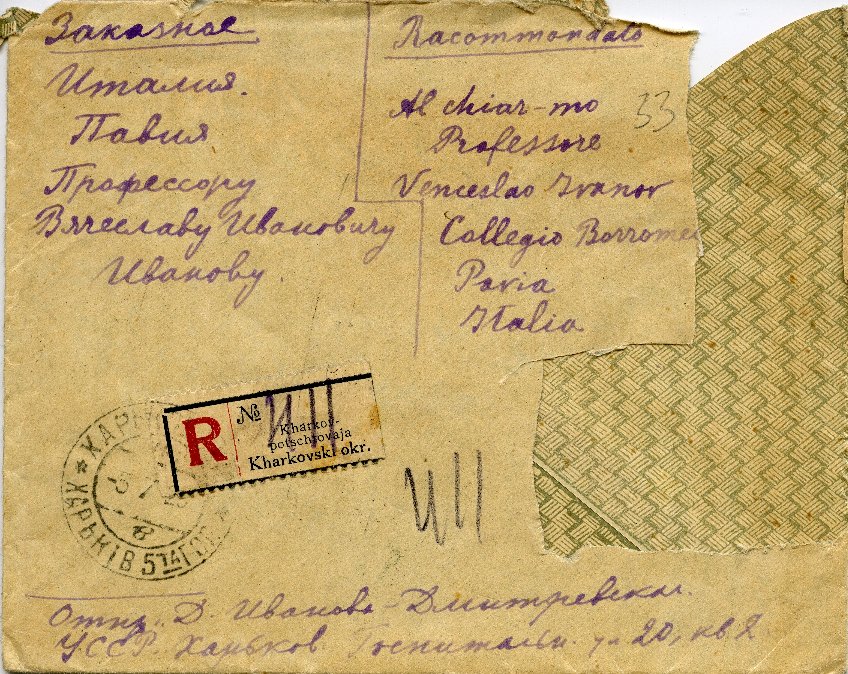 Заказное.
Италия.
Павия
Профессору
Вячеславу Ивановичу
Иванову.
Racommandato
Al chiar-mo
33
Professore
Venceslao Ivanov
Collegio Borromeo
Pavia
Italia
R
№
Kharkov-
potschtovaja
Kharkovski okr.
ХАРЬКІВ
5
Отпр. Д. Иванова-Дмитревская.
УССР. Харьков. Госпитальн. ул 20, кв 2